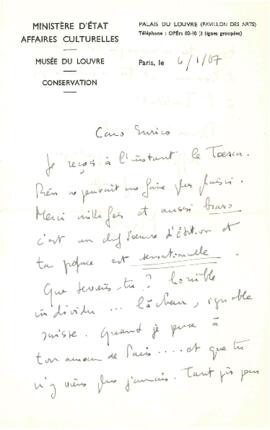 MINISTÈRE D'ÉTAT
AFFAIRES CULTURELLES
MUSÉE DU LOUVRE
CONSERVATION
PALAIS DU LOUVRE (PAVILLON DES ARTS)
Téléphone : OPÉra 80-10 (3 lignes groupées)
Paris, le 6/1/67
Caro Enrico
Je reçois à l'instant le Toesca.
Rien ne pouvait me faire plus plaisir.
Merci mille fois et aussi bravo
c'est un chef d'œuvre d'édition et
ta préface est sensationnelle.
Que deviens-tu ? horrible
individu ... lâcheur, ignoble
suisse. Quand je pense à
ton amour de Paris .... et que tu
n'y viens plus jamais. Tant pis pour